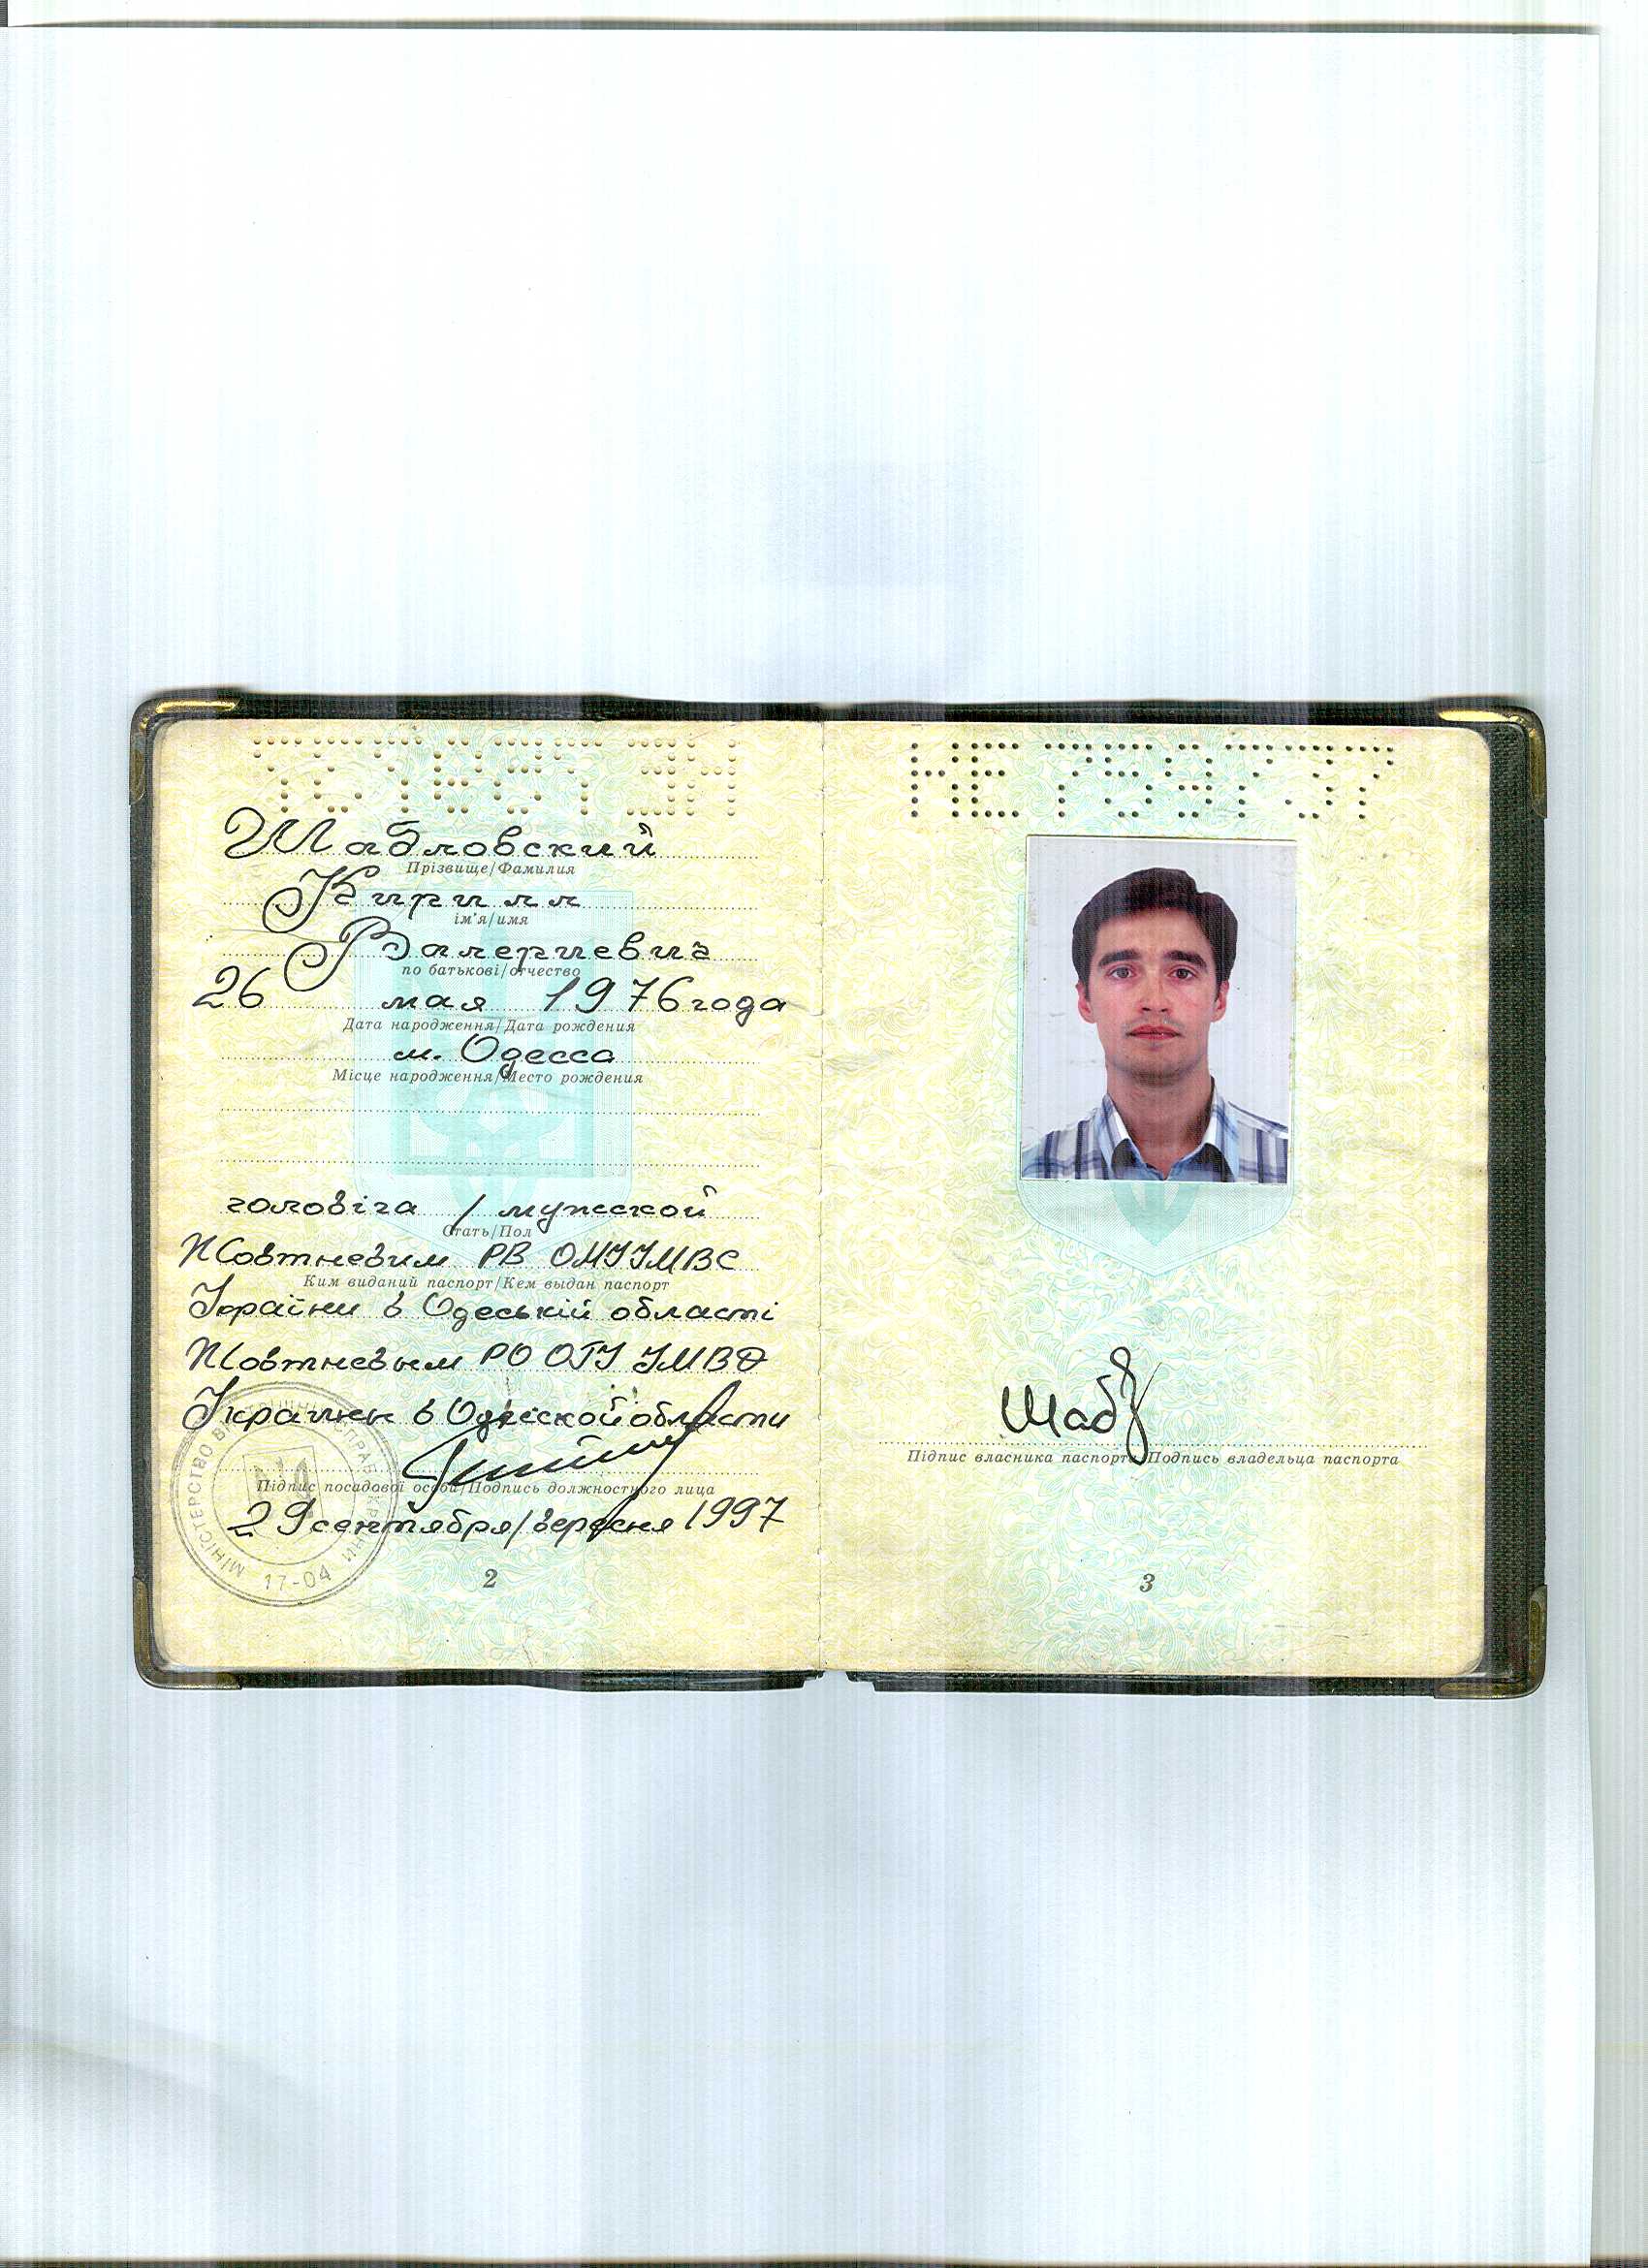 Шабловский
Прізвище/Фамилия
Кирилл
ім'я/имя
Валериевич
по батькові/отчество
26 мая 1976 года
Дата народження/Дата рождения
м. Одесса
Місце народження/Место рождения
чоловіча / мужской
Стать/Пол
Жовтневим РВ ОМУ УМВС
Ким виданий паспорт/Кем выдан паспорт
України в Одеській області
Жовтневым РО ОГУ УМВД
Украины в Одесской области
Підпис посадової особи/Подпись должностного лица
29 сентября/вересня 1997
МІНІСТЕРСТВО ВНУТРІШНІХ СПРАВ УКРАЇНИ
17-04
2
НЕ
Шаб
Підпис власника паспорта/Подпись владельца паспорта
3